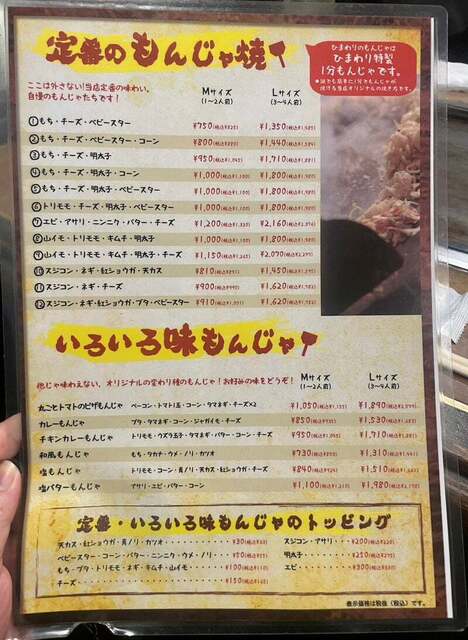 定番のもんじゃ焼
ここは外さない!当店定番の味わい。
自慢のもんじゃたちです!
Mサイズ
(1〜2人前)
Lサイズ
(3〜4人前)
ひまわりのもんじゃは
ひまわり特製
1分もんじゃです。
①もち・チーズ・ベビースター ¥750(税込¥825) ¥1,350(税込¥1,485)
②もち・チーズ・ベビースター・コーン ¥800(税込¥880) ¥1,440(税込¥1,584)
③もち・チーズ・明太子 ¥950(税込¥1,045) ¥1,710(税込¥1,881)
④もち・チーズ・明太子・コーン ¥1,000(税込¥1,100) ¥1,800(税込¥1,980)
⑤もち・チーズ・明太子・ベビースター ¥1,000(税込¥1,100) ¥1,800(税込¥1,980)
⑥トリモモ・チーズ・明太子・ベビースター ¥1,000(税込¥1,100) ¥1,800(税込¥1,980)
⑦エビ・アサリ・ニンニク・バター・チーズ ¥1,200(税込¥1,320) ¥2,160(税込¥2,376)
⑧山イモ・トリモモ・キムチ・明太子 ¥1,000(税込¥1,100) ¥1,800(税込¥1,980)
⑨山イモ・トリモモ・キムチ・明太子・チーズ ¥1,150(税込¥1,265) ¥2,070(税込¥2,277)
⑩スジコン・ネギ・紅ショウガ・天カス ¥810(税込¥891) ¥1,450(税込¥1,595)
⑪スジコン・ネギ・チーズ ¥900(税込¥990) ¥1,620(税込¥1,782)
⑫スジコン・ネギ・紅ショウガ・ブタ・ベビースター ¥910(税込¥1,001) ¥1,620(税込¥1,782)
いろいろ味もんじゃ
他じゃ味わえない、オリジナルの変わり種のもんじゃ!お好みの味をどうぞ!
Mサイズ
(1〜2人前)
Lサイズ
(3〜4人前)
丸ごとトマトのピザもんじゃ ベーコン・トマト1玉・コーン・タマネギ・チーズ×2 ¥1,050(税込¥1,155) ¥1,890(税込¥2,079)
カレーもんじゃ ブタ・タマネギ・コーン・ジャガイモ・チーズ ¥850(税込¥935) ¥1,530(税込¥1,683)
チキンカレーもんじゃ トリモモ・ウズラ玉子・タマネギ・バター・コーン・チーズ ¥950(税込¥1,045) ¥1,710(税込¥1,881)
和風もんじゃ もち・タカナ・ウメ・ノリ・カツオ ¥730(税込¥803) ¥1,310(税込¥1,441)
塩もんじゃ トリモモ・コーン・青ノリ・天カス・紅ショウガ・チーズ ¥840(税込¥924) ¥1,510(税込¥1,661)
塩バターもんじゃ アサリ・エビ・バター・コーン ¥1,100(税込¥1,210) ¥1,980(税込¥2,178)
定番・いろいろ味もんじゃのトッピング
天カス・紅ショウガ・青ノリ・カツオ ¥30(税込¥33)
ベビースター・コーン・バター・ニンニク・ウメ・ノリ ¥50(税込¥55)
もち・ブタ・トリモモ・ネギ・キムチ・山イモ ¥100(税込¥110)
チーズ ¥150(税込¥165)
スジコン・アサリ ¥200(税込¥220)
明太子 ¥250(税込¥275)
エビ ¥300(税込¥330)
表示価格は税抜(税込)です。